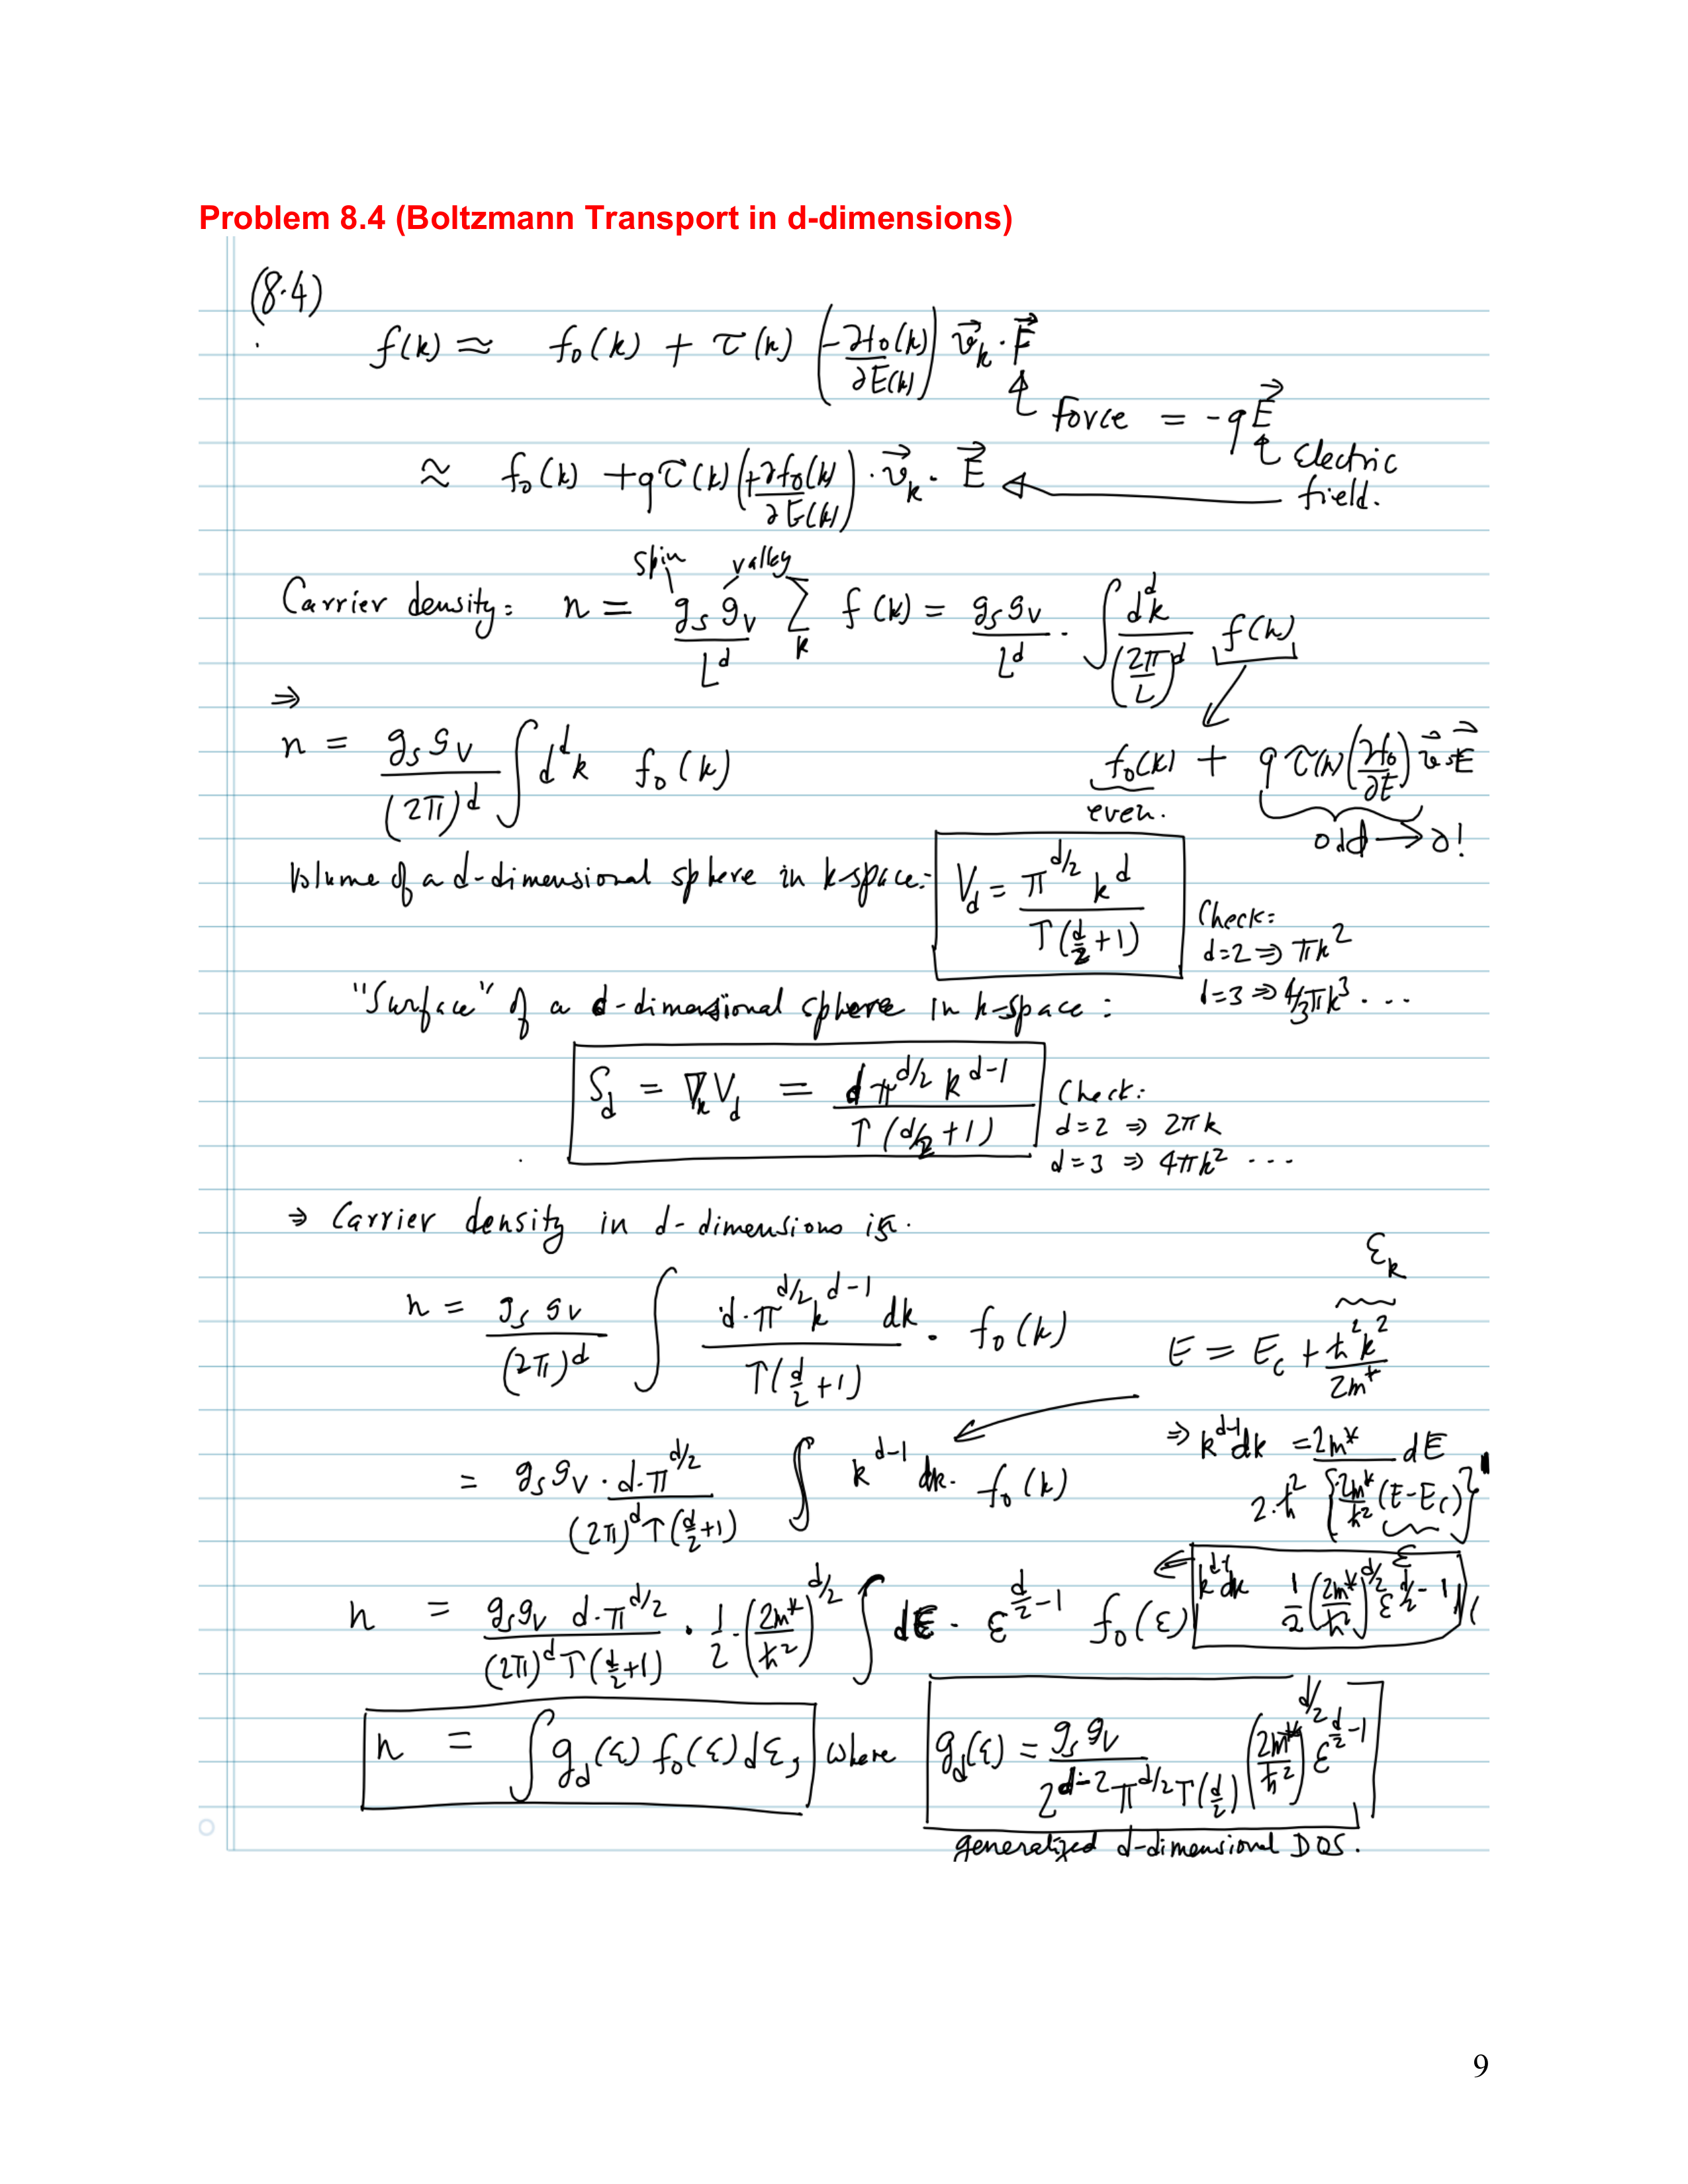 Problem 8.4 (Boltzmann Transport in d-dimensions)
(8.4)
f(k) ≈ f₀(k) + τ(k) (-∂f₀(k)/∂E(k)) v⃗ₖ · F⃗
Force = -qE⃗
Electric field.
≈ f₀(k) + qτ(k) (+∂f₀(k)/∂E(k)) · v⃗ₖ · E⃗
spin valley
Carrier density: n = (g_s g_v / L^d) Σ_k f(k) = (g_s g_v / L^d) · ∫ d^d k / (2π/L)^d f(k)
⇒
n = (g_s g_v / (2π)^d) ∫ d^d k f₀(k)
f₀(k) + q τ(k) (∂f₀/∂E) v⃗ · E⃗
even.
odd → 0!
Volume of a d-dimensional sphere in k-space: V_d = π^{d/2} k^d / Γ(d/2 + 1)
Check:
d=2 ⇒ πk²
d=3 ⇒ 4/3 πk³ . . .
"Surface" of a d-dimensional sphere in k-space :
S_d = ∇_k V_d = d π^{d/2} k^{d-1} / Γ(d/2 + 1)
Check:
d=2 ⇒ 2πk
d=3 ⇒ 4πk² . . .
⇒ Carrier density in d-dimensions is:
n = (g_s g_v / (2π)^d) ∫ (d · π^{d/2} k^{d-1} dk / Γ(d/2 + 1)) · f₀(k)
ℰ_k
E = E_c + ħ²k²/2m*
⇒ k^{d-1} dk = 2m* dE / 2·ħ² {2m*/ħ² (E-E_c)}
ℰ
= (g_s g_v · d · π^{d/2} / (2π)^d Γ(d/2 + 1)) ∫ k^{d-1} dk · f₀(k)
k^{d-1} dk 1/2 (2m*/ħ²)^{d/2} ℰ^{d/2 - 1}
n = (g_s g_v d · π^{d/2} / (2π)^d Γ(d/2 + 1)) · 1/2 · (2m*/ħ²)^{d/2} ∫ dℰ · ℰ^{d/2 - 1} f₀(ℰ)
n = ∫ g_d(ℰ) f₀(ℰ) dℰ, where g_d(ℰ) = (g_s g_v / 2^{d-2} π^{d/2} Γ(d/2)) (2m*/ħ²)^{d/2} ℰ^{d/2 - 1}
generalized d-dimensional DOS.
9